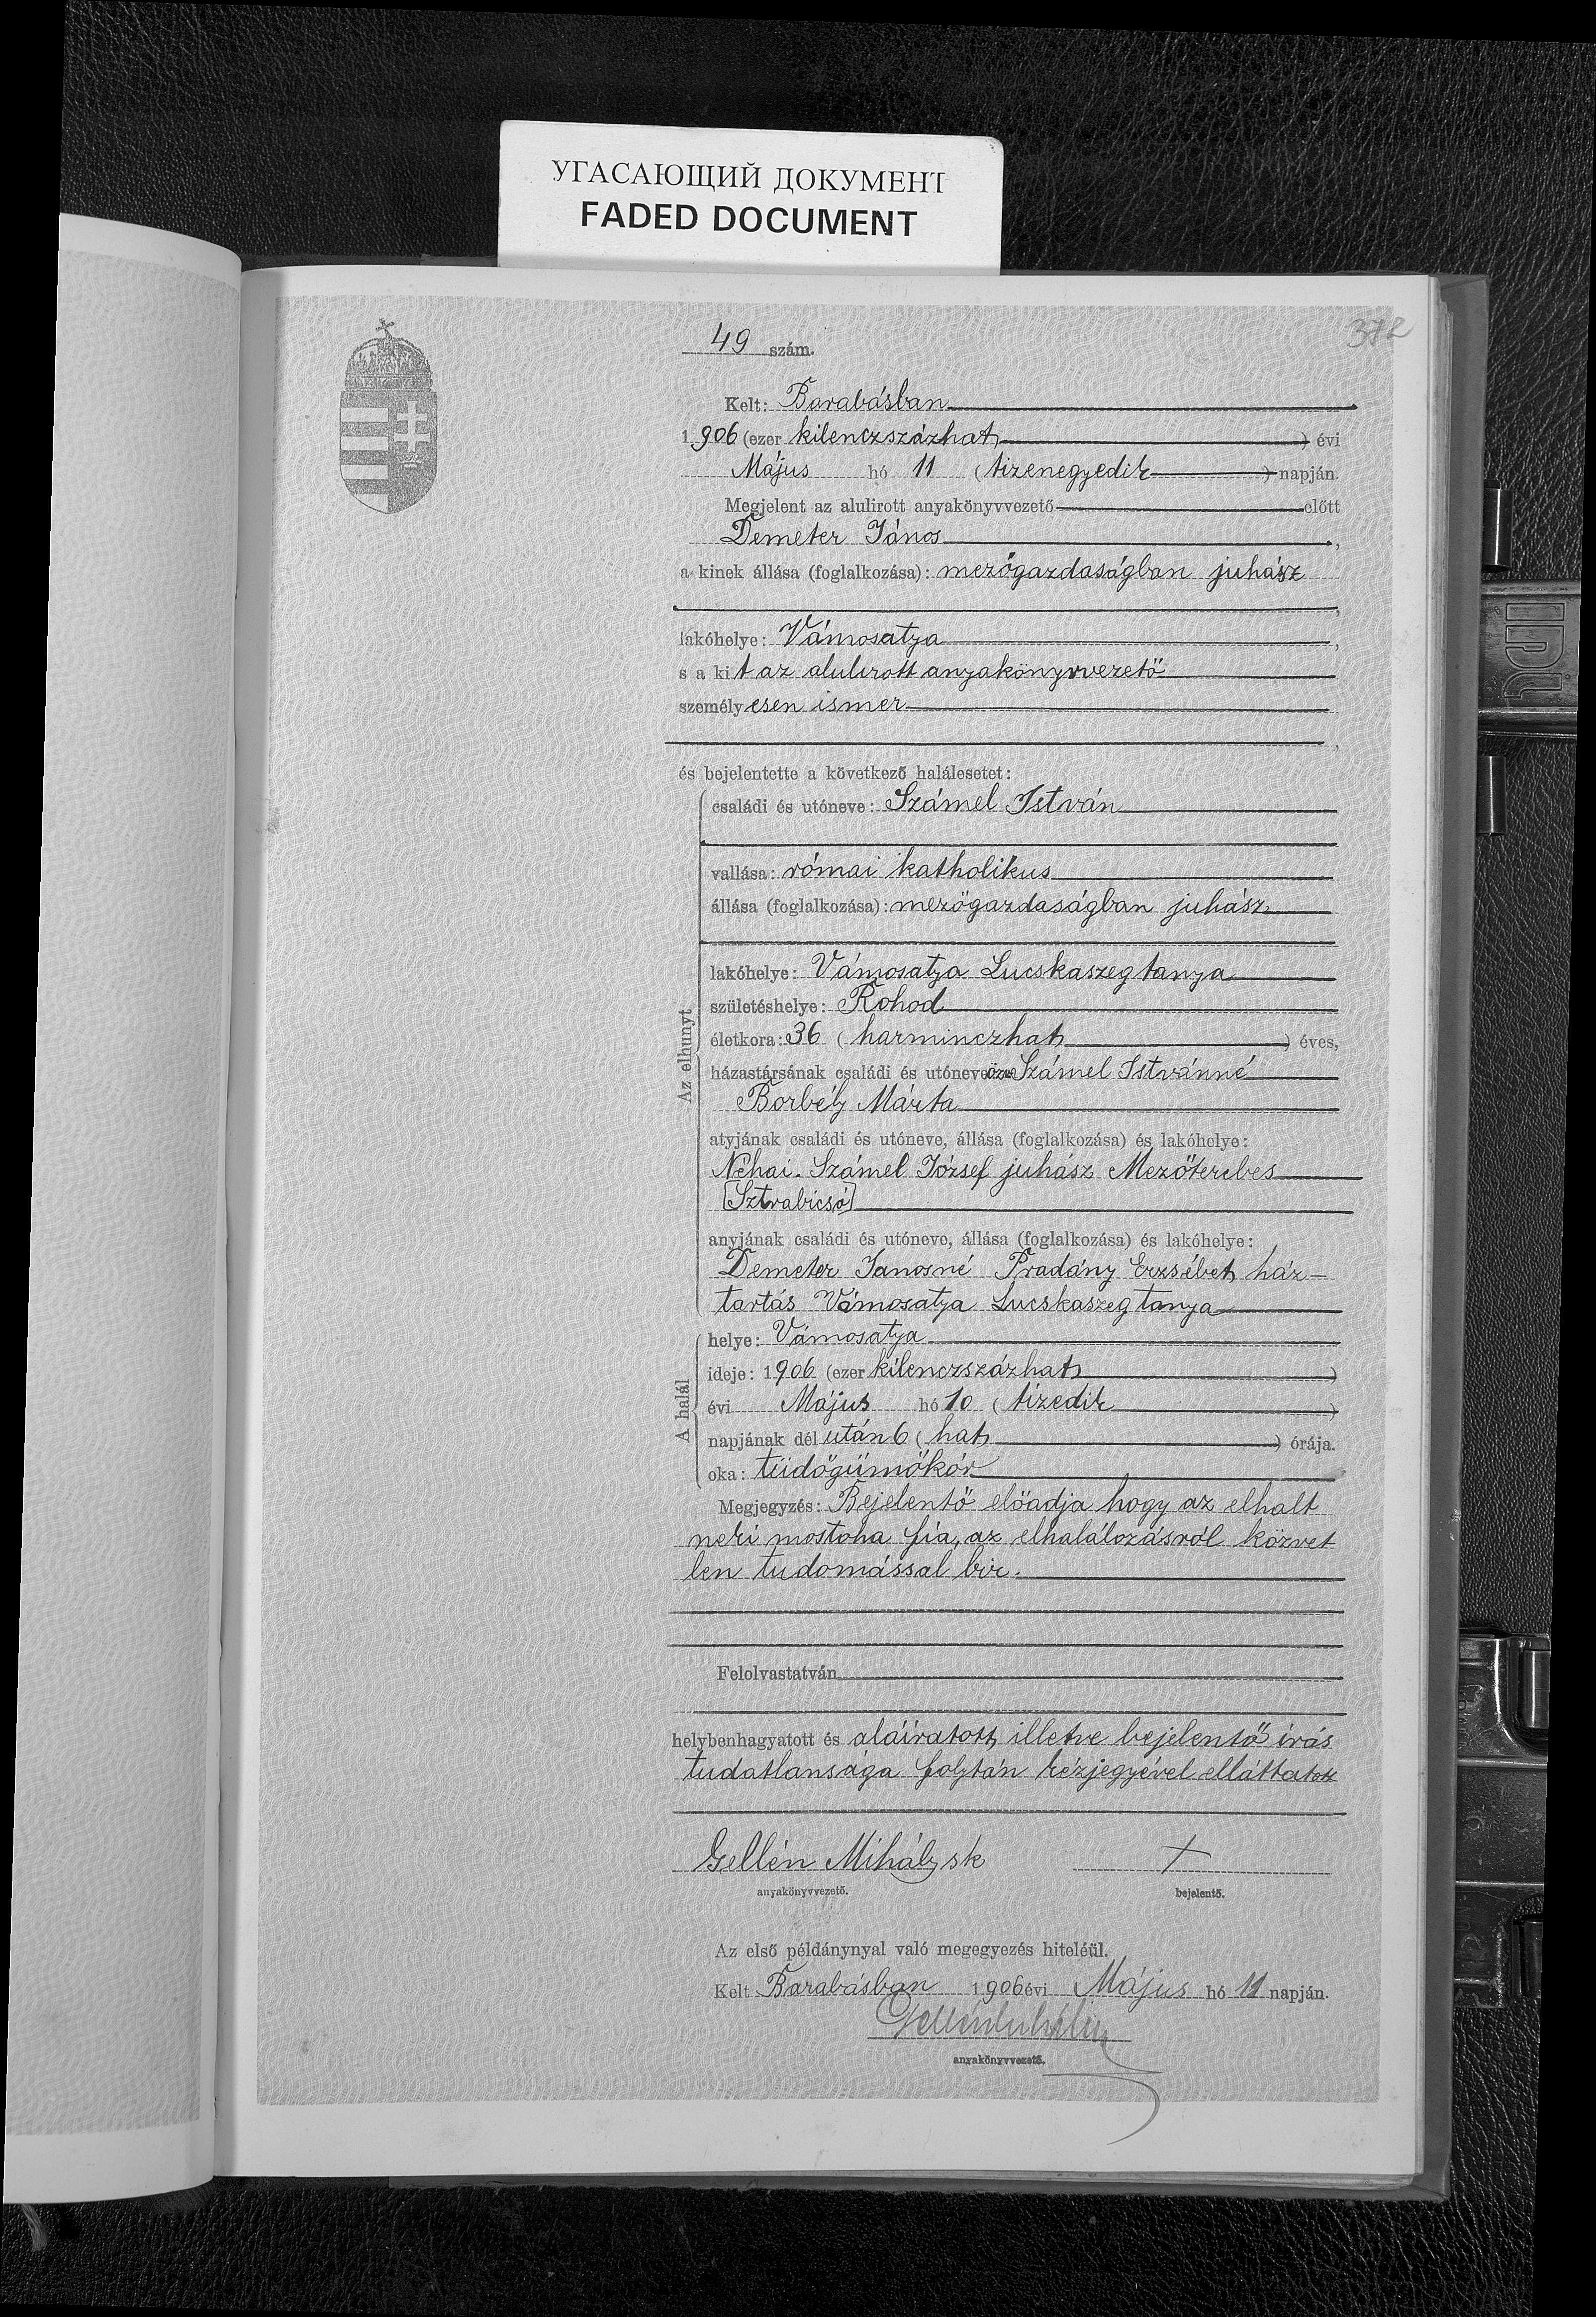 УГАСАЮЩИЙ ДОКУМЕНТ
FADED DOCUMENT
372
49 szám.
Kelt: Barabásban
1906 (ezer kilenczszázhat) évi
Május hó 11 (tizenegyedik) napján.
Megjelent az alulirott anyakönyvvezető előtt
Demeter János,
a kinek állása (foglalkozása): mezőgazdaságban juhász
,
lakóhelye: Vámosatya,
s a kit az alulirott anyakönyvvezető
személyesen ismer
,
és bejelentette a következő halálesetet:
Az elhunyt
családi és utóneve: Számel István
vallása: római katholikus
állása (foglalkozása): mezőgazdaságban juhász
lakóhelye: Vámosatya Lucskaszeg tanya
születéshelye: Rohod
életkora: 36 (harminczhat) éves,
házastársának családi és utóneve: özv Számel Istvánné
Borbély Márta
atyjának családi és utóneve, állása (foglalkozása) és lakóhelye:
Néhai. Számel József juhász Mezőterebes
[Sztrabicsó]
anyjának családi és utóneve, állása (foglalkozása) és lakóhelye:
Demeter Janosné Pradány Erzsébet ház-
tartás Vámosatya Lucskaszeg tanya
A halál
helye: Vámosatya
ideje: 1906 (ezer kilenczszázhat)
évi Május hó 10 (tizedik)
napjának dél után 6 (hat) órája.
oka: tüdőgümőkór
Megjegyzés: Bejelentő előadja hogy az elhalt
neki mostoha fia, az elhalálozásról közvet
len tudomással bir.
Felolvastatván
helybenhagyatott és aláiratott, illetve bejelentő irás
tudatlansága folytán kézjegyével elláttatott
Gellén Mihály sk +
anyakönyvvezető. bejelentő.
Az első példánynyal való megegyezés hiteléül.
Kelt Barabásban 1906 évi Május hó 11 napján.
Gellén Mihály
anyakönyvvezető.